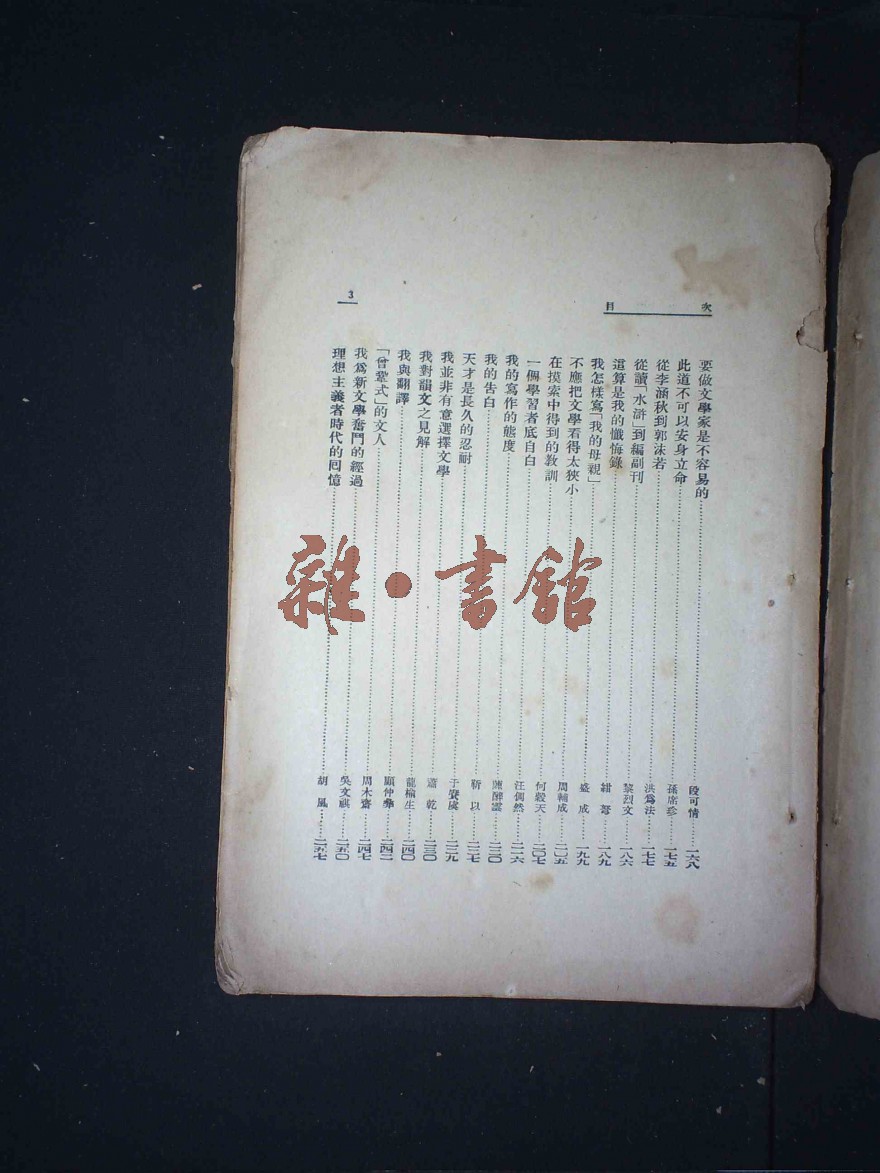 目次
要做文學家是不容易的……段可情……一六八
此道不可以安身立命……孫席珍……一七五
從李涵秋到郭沫若……洪為法……一七七
從讀「水滸」到編副刊……黎烈文……一八六
這算是我的懺悔錄……紺弩……一八九
我怎樣寫「我的母親」……盛成……一九九
不應把文學看得太狹小……周輔成……二〇五
在摸索中得到的教訓……何穀天……二〇七
一個學習者底自白……汪偶然……二一六
我的寫作的態度……陳醉雲……二二〇
我的告白……靳以……二二七
天才是長久的忍耐……于賡虞……二二九
我並非有意選擇文學……蕭乾……二三〇
我對韻文之見解……龍楡生……二四〇
我與翻譯……顧仲彝……二四二
「曾鞏式」的文人……周木齋……二四七
我為新文學奮鬥的經過……吳文祺……二五〇
理想主義者時代的回憶……胡風……二五七
3
雜·書館